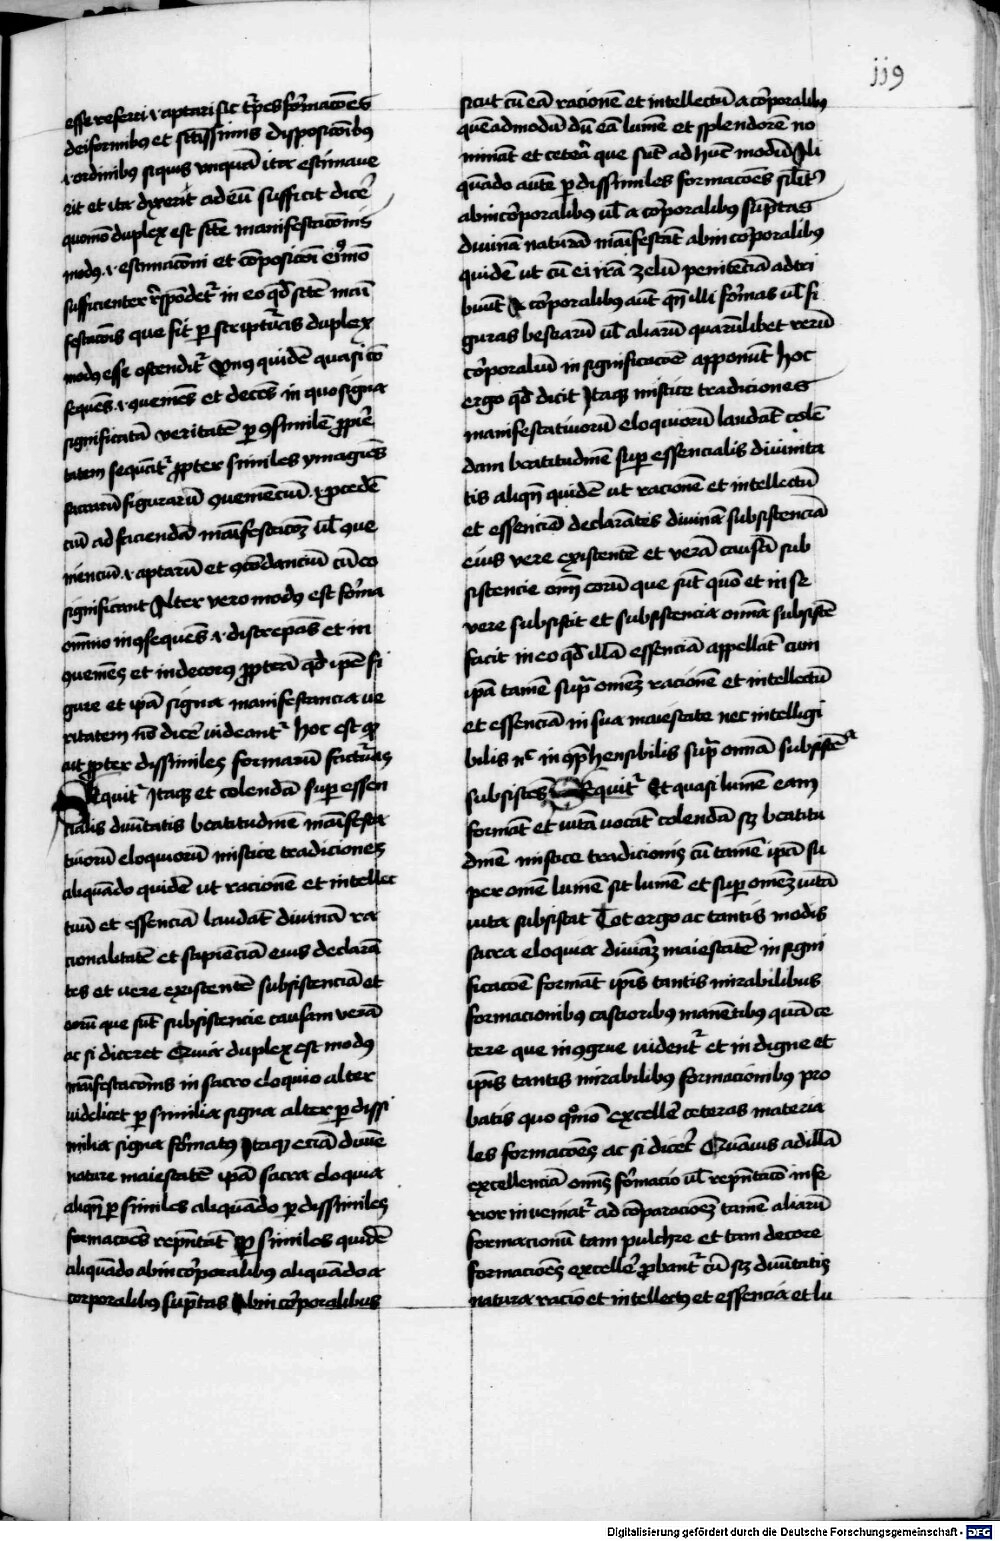 119
esse referri et aptari sic tpes formacoes
deiformibus et sctissimis disposicoibus
et ordinibus siquis unquam ita estimaue
rit et ita dixerit ad eu sufficit dicer
quomo duplex est scte manifestacois
modus et estimaconi et composicoi eius mo
sufficienter respodetur in eo qd scte mani
festacois que fit per scripturas duplex
modus esse ostenditur Unus quide quasi co
sequens et queniens et decens in quo signa
significata veritate per consimile proprie
tatem sequuntur propter similes ymagines
sacraru figuraru queniencium et procede
ciu ad faciendam manifestacoem uel que
nienciu et aptaru et concordanciu cum eo
significant Alter vero modus est forma
omnino inconsequens et discrepans et in
queniens et indecorus propterea qd ipse fi
gure et ipsa signa manifestancia ue
ritatem non dicere videantur hoc est quod
ait propter dissimiles formarum facturas
Sequitur Itaque et colendam super essen
cialis diuinitatis beatitudinem manifesta
tiuorum eloquiorum mistice tradiciones
aliquando quidem ut racionem et intellec
tum et essenciam laudant diuinam ra
cionalitatem et sapienciam eius declaran
tes et vere existentem subsistenciam et
eorum que sunt subsistencie causam veram
ac si diceret Quia duplex est modus
manifestacionis in sacro eloquio alter
videlicet per similia signa alter per dissi
milia signa formatus Itaque eciam diuine
nature maiestatem ipsa sacra eloquia
aliquando per similes aliquando per dissimiles
formacoes representant Per similes quidem
aliquando ab incorporalibus aliquando a
corporalibus sumptas Ab incorporalibus
sicut cu ea racione et intellectu a corporalibus
queadmodu du ea lume et splendore no
minant et cetera que sunt ad hunc modum Ali
quando autem per dissimiles formacoes similiter
ab incorporalibus uel a corporalibus sumptas
diuinam naturam manifestant ab incorporalibus
quidem ut cum ei iram zelum penitenciam adtri
buunt A corporalibus autem quando illi formas uel fi
guras bestiarum uel aliarum quarumlibet rerum
corporalium in significacoem apponunt hoc
ergo quod dicit Itaque mistice tradiciones
manifestatiuorum eloquiorum laudant colen
dam beatitudinem super essencialis diuinita
tis aliquando quidem ut racionem et intellectum
et essenciam declarantes diuinam subsistenciam
eius vere existentem et veram causam sub
sistencie omnium eorum que sunt quoniam et in se
vere subsistit et subsistencia omnia subsistere
facit in eo quod illam essenciam appellant cum
ipsa tamen supra omnem racionem et intellectum
et essenciam in sua maiestate nec intelligi
bilis nec inconprehensibilis supra omnia subsistencia
subsistens Sequitur Et quasi lumen eam
formant et uitam vocant colendam scilicet beatitu
dinem mistice tradicionis cum tamen ipsa su
per omne lumen sit lumen et super omnem uitam
uita subsistat Tot ergo ac tantis modis
sacra eloquia diuinam maiestatem in signi
ficacoe formant ipsis tantis mirabilibus
formacionibus castioribus manentibus quam ce
tere que incongrue uidentur et indigne et
ipsis tantis mirabilibus formacionibus pro
batis quo quomodo excellere ceteras materia
les formacoes ac si diceret Quamuis ad illam
excellenciam omnis formacio uel representacio infe
rior inueniatur ad comparacoem tamen aliarum
formacionum tam pulchre et tam decore
formacoes excellere probantur cum scilicet diuinitatis
natura racio et intellectus et essencia et lu
Digitalisierung gefördert durch die Deutsche Forschungsgemeinschaft - DFG